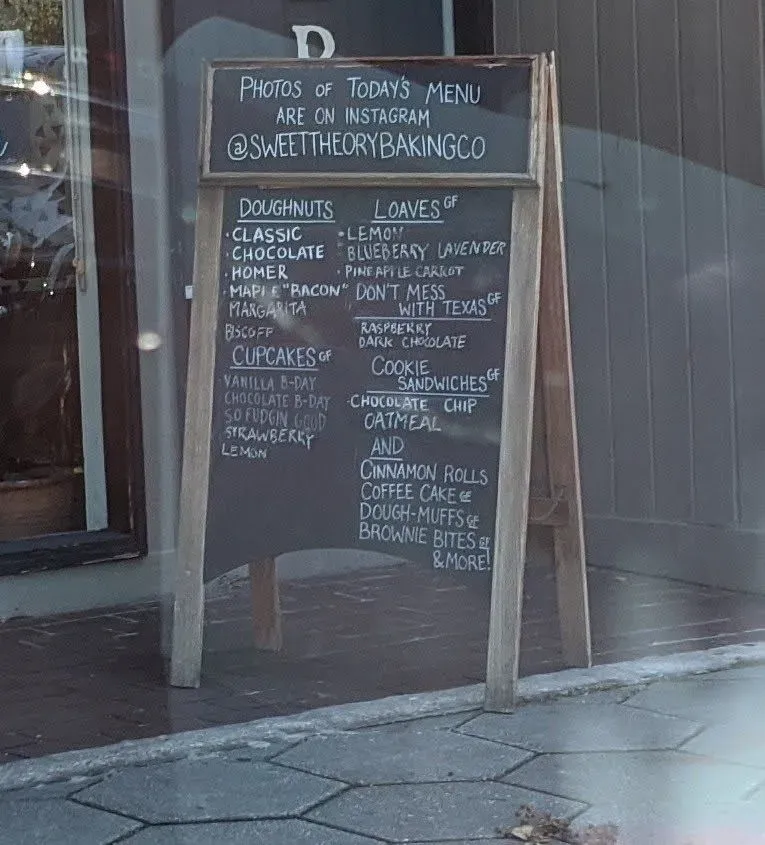 R
PHOTOS OF TODAY'S MENU
ARE ON INSTAGRAM
@SWEETTHEORYBAKINGCO
DOUGHNUTS
· CLASSIC
· CHOCOLATE
· HOMER
· MAPLE "BACON"
MARGARITA
BISCOFF
CUPCAKES GF
VANILLA B-DAY
CHOCOLATE B-DAY
SO FUDGIN GOOD
STRAWBERRY
LEMON
LOAVES GF
· LEMON
· BLUEBERRY LAVENDER
· PINEAPPLE CARROT
DON'T MESS
WITH TEXAS GF
RASPBERRY
DARK CHOCOLATE
COOKIE
SANDWICHES GF
· CHOCOLATE CHIP
OATMEAL
AND
CINNAMON ROLLS
COFFEE CAKE GF
DOUGH-MUFFS GF
BROWNIE BITES GF
& MORE!